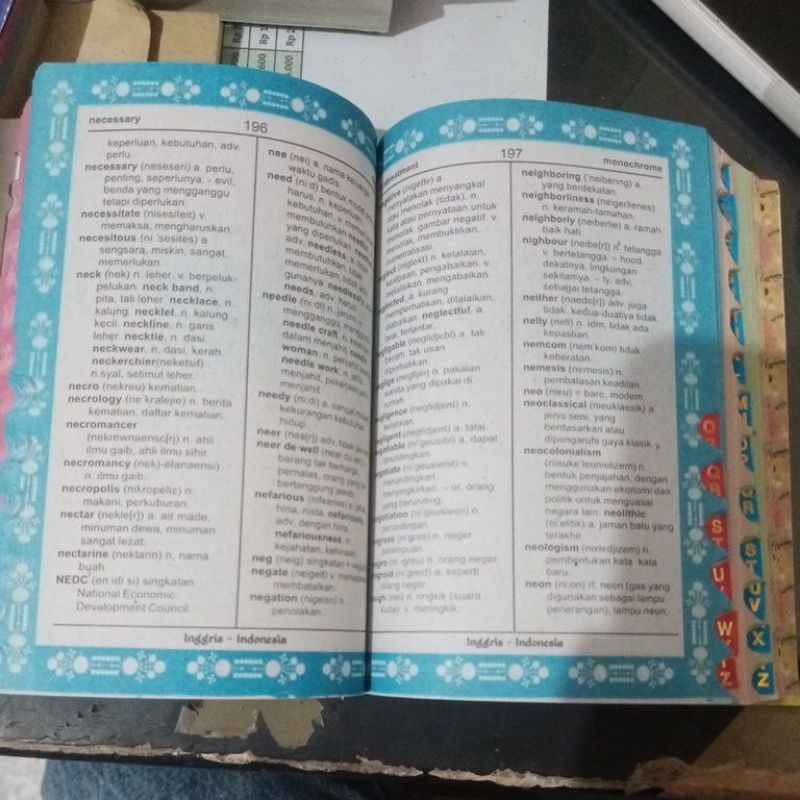 necessary
196
keperluan, kebutuhan, adv.
perlu.
necessary (neseseri) a. perlu,
penting, seperlunya. - evil,
benda yang mengganggu
tetapi diperlukan.
necessitate (nisesiteit) v.
memaksa, mengharuskan.
necesitous (ni 'sesites) a.
sengsara, miskin, sangat
memerlukan.
neck (nek) n. leher. v. berpeluk-
pelukan. neck band, n.
pita, tali leher. necklace, n.
kalung. necklet, n. kalung
kecil. neckline, n. garis
leher. necktie, n. dasi.
neckwear. n. dasi, kerah.
neckerchier(neketsif)
n.syal, selimut leher.
necro (nekreu) kematian.
necrology (ne'kralejie) n. berita
kematian, daftar kematian.
necromancer
(nekrewnaensc[r]) n. ahli
ilmu gaib, ahli ilmu sihir.
necromancy (nek)-elanaensi)
n. ilmu gaib.
necropolis (nikropeliz) n.
makani, perkuburan.
nectar (nekle[r]) a. air made,
minuman dewa, minuman
sangat lezat.
nectarine (nektarin) n, nama
buah.
NEDC (en idi si) singkatan
National Economic
Development Council.
nee (nei) a. nama keluarga
waktu gadis.
need (ni:d) bentuk
harus. n. keperluan,
kebutuhan. v.
membutuhkan.
yang diperlukan.
adv. needless, a.
membutuhkan, tidak
memerlukan, tidak
gunanya. needlessly
needs, adv. harus
needle (ni:dl) n. jarum.
mengganggu,
needle craft, n.
dalam menjahit.
woman, n. penjahit
needle work, n.
menjahit, pekerjaan
menjahit.
needy (ni:di) a. sangat
kekurangan kebutuhan
hidup.
neer (nea[r]) adv. tidak
neer de well (near du we
barang tak berharga.
pemalas, orang yang
bertanggung jawab.
nefarious (nifearies) a.
hina, nista. nefariously
adv, dengan hina.
nefariousness. n.
kejahatan, kehinaan.
neg (neig) singkatan
negate (neigeit) v.
membatalkan.
negation (nigeisn) n.
penolakan.
Inggris - Indonesia
197
monochrome
(nigetlv) a.
menyatakan menyangkal
atau menolak (tidak). n.
kata atau pernyataan untuk
menolak. gambar negatif. v.
menolak, membuktikan.
menetralisasi.
(niglekt) n. kelalaian.
pengabaian. v.
mengabaikan.
a. kurang
memperhatikan, dilalaikan.
diabaikan. neglectful. a.
lalai, terlantar.
(neglidjebl) a. tak
berarti, tak usah
diperhatikan.
(neglije) n. pakaian
wanita yang dipakai di
rumah.
(neglidjent) n.
kelalaian.
(neglidjent) a. lalai.
(ni'geusibl) a. dapat
dirundingkan.
(ni'geusienit) v.
merundingkan,
menyingkirkan. – or, orang
yang berunding.
(ni'geusiesn) n.
perundingan.
(ni'gres) n. neger
perempuan.
(ni-greu) n. orang neger.
(ni'greid) a. seperti
orang neger.
(nei) n. ringkik (suara
kuda). v. meringkik.
neighboring ('neibering) a.
yang berdekatan.
neighborliness (neigerlienes)
n. keramah-tamahan.
neighborly (neiberlie) a. ramah
baik hati.
nighbour (neibe[r]) n. tetangga
v. bertetangga. – hood.
dekatnya, lingkungan
sekitarnya. – ly. adv.
sebagai tetangga.
neither (naede[r]) adv. juga
tidak. kedua-duatiya tidak.
nelly (neli) n. idm, tidak ada
kepastian.
nemcom (nem'kom) tidak
keberatan.
nemesis (nemesis) n.
pembalasan keadilan.
neo (nieu) = baro, modem.
neoclassical (nieuklassik) a.
jenis seni, yang
berdasarkan atau
dipengaruhi gaya klasik.
neocolonialism
(nieuke'leunielizem) n.
bentuk penjajahan, dengan
menggunakan ekonomi dan
politik untuk menguasai
negara lain. neolithic
(ni'elitik) a. jaman batu yang
terakhir.
neologism (nixledjizem) n.
pembentukan kata kata
baru.
neon (ni:on) rl. neon (gas yang
digunakan sebagai lampu
penerangan), lampu neon.
Inggris - Indonesia
S
T
U
W
X
Z